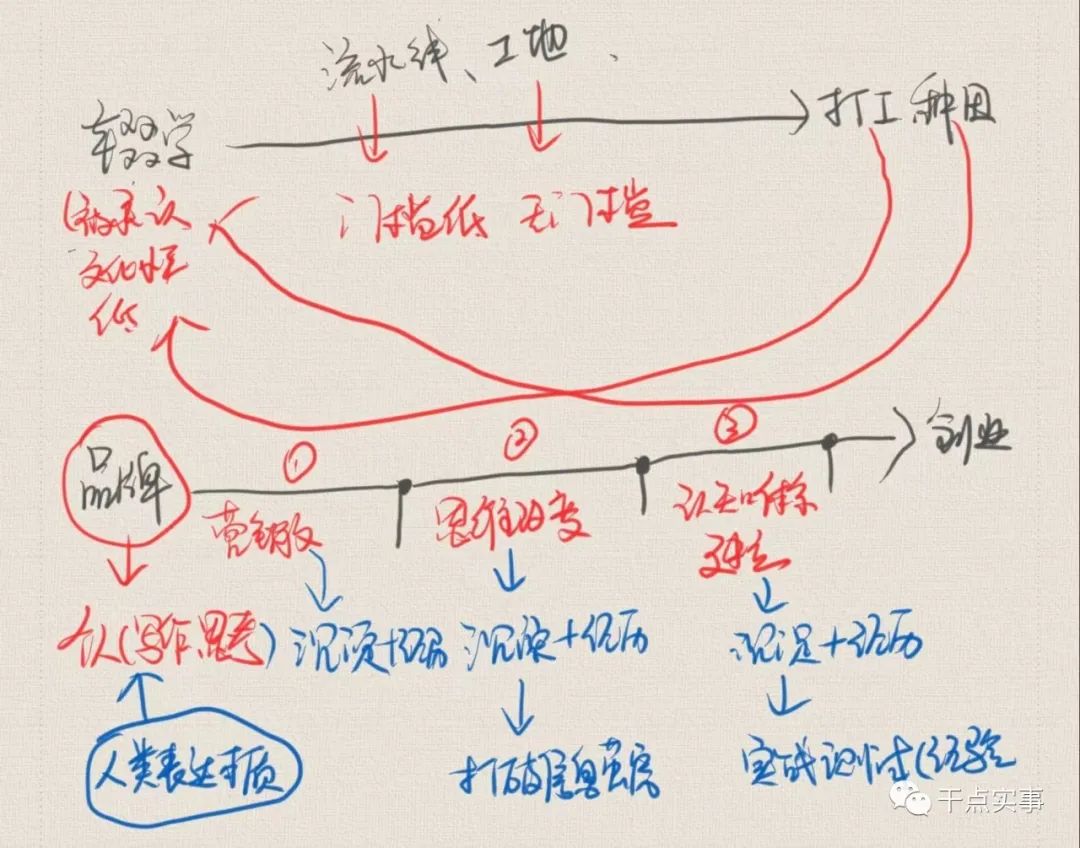 流水线、工地、
辍学
打工、种田
(被承认
文化水平
低
门槛低 无门槛
品牌
① ② ③
创业
营销
思维改变
认知体系
建立
个人(写作.思考)
沉淀+经历
沉淀+经历
沉淀+经历
人类表达本质
打破信息茧房
实战测试(经验
干点实事